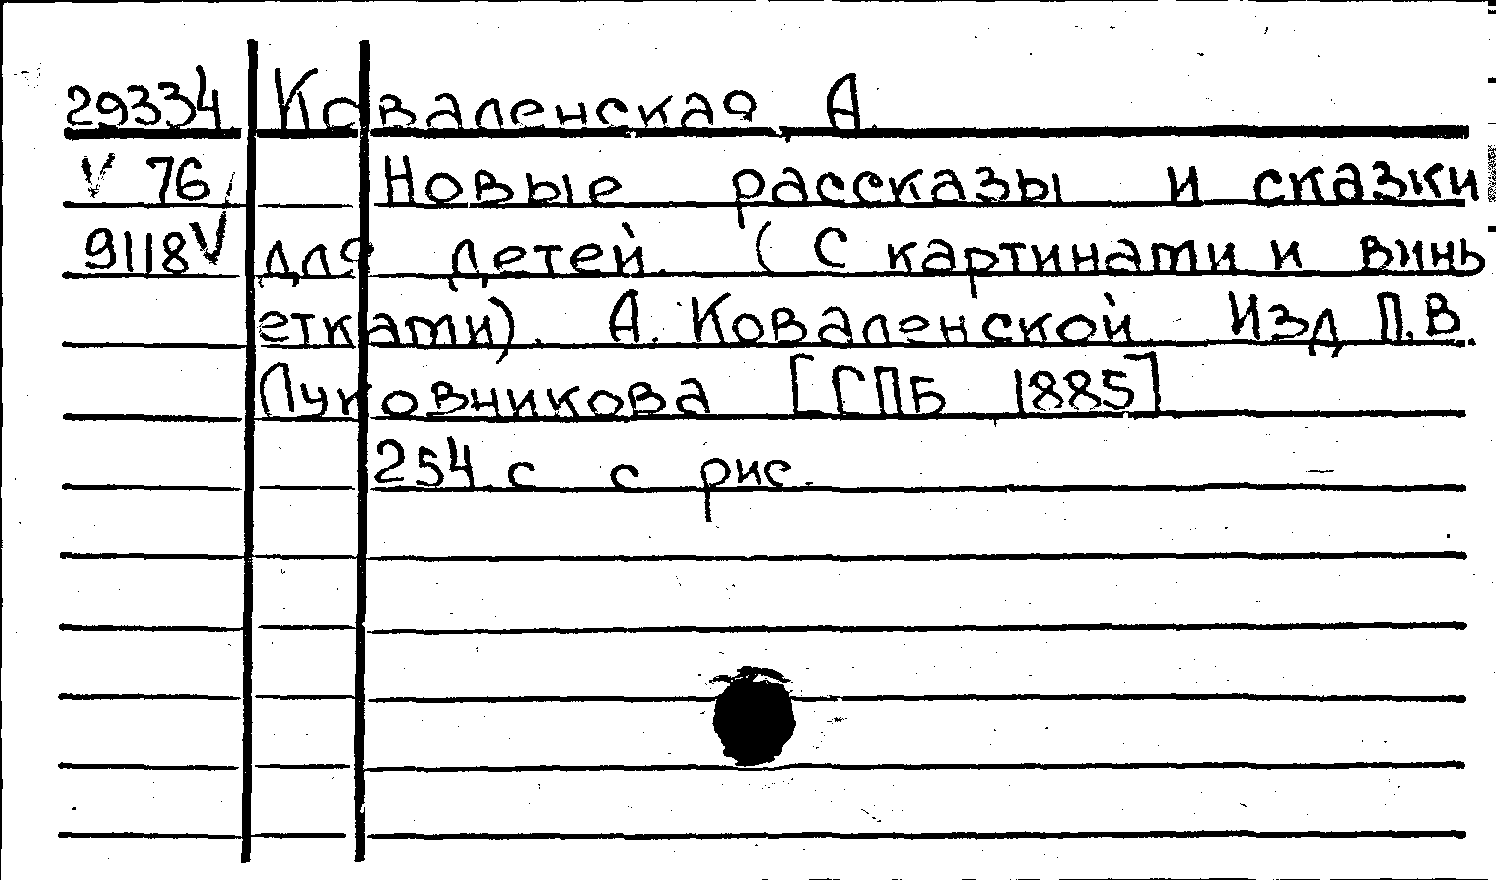 29334 Коваленская А.
V 76 Новые рассказы и сказки
9118 V для детей. (С картинами и винь
етками). А. Коваленской Изд П.В.
Луковникова [СПБ 1885]
254 с с рис.